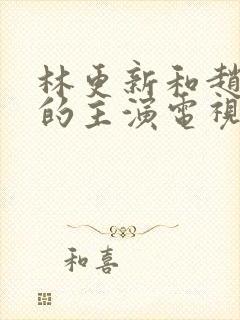 林更新和趙
的主演電視
和喜